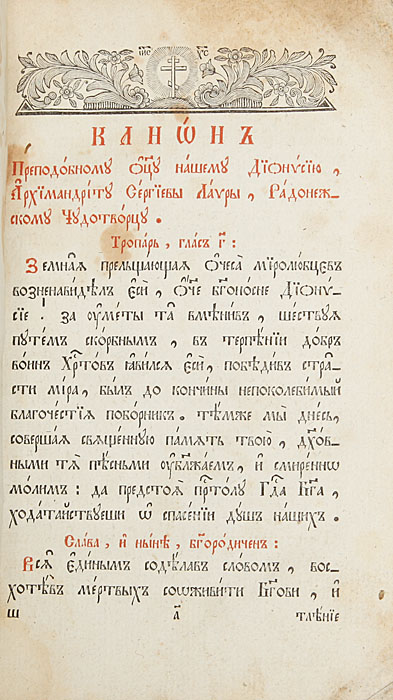 І҆И҃С ХР҃С
КАНѠ́НЪ
Преподо́бному ѻ҆тцꙋ̀ на́шему Дїѻнѵ́сїю ,
А҆рхїмандрі́тꙋ Се́ргїевы Ла́ѵры , Ра́донеж-
скому Чꙋдотво́рцꙋ .
Тропа́рь , гла́съ г҃ :
Земна́ѧ прельща́ющаѧ ѻ҆чеса̀ мїролю́бцєвъ
возненави́дѣлъ є҆сѝ , ѻ҆́ч҃е бг҃оно́сне Дїѻнѵ́-
сїе : за ᲂу҆ме́ты та̑ вмѣни́въ , ше́ствꙋѧ
пꙋте́мъ ско́рбнымъ , въ терпѣ́нїи до́бръ
во́инъ Хрⷭ҇то́въ ꙗ҆ви́лсѧ є҆сѝ , побѣди́въ стра̑-
сти мі́ра , бы́лъ до кончи́ны непоколеби́мый
благоче́стїѧ побо́рникъ . тѣ́мже мы̀ дне́сь ,
соверша́ѧ свѧще́ннꙋю па́мѧть твою̀ , дх҃о́в-
ными тѧ̀ пѣ́сньми ᲂу҆блажа́емъ , и҆ смире́ннѡ
мо́лимъ : да предстоѧ̀ прⷭ҇то́лꙋ Гдⷭ҇а Бг҃а ,
хода́тайствꙋеши ѡ҆ спасе́нїи дꙋ́шъ на́шихъ .
Сла́ва , и҆ ны́нѣ , бг҃оро́диченъ :
Всѧ̑ є҆ди́нымъ содѣ́лавъ сло́вомъ , вос-
хотѣ́въ ме́ртвыхъ соѡживи́ти Бг҃ови , и҆
ш а҃ тлѣ́нїе